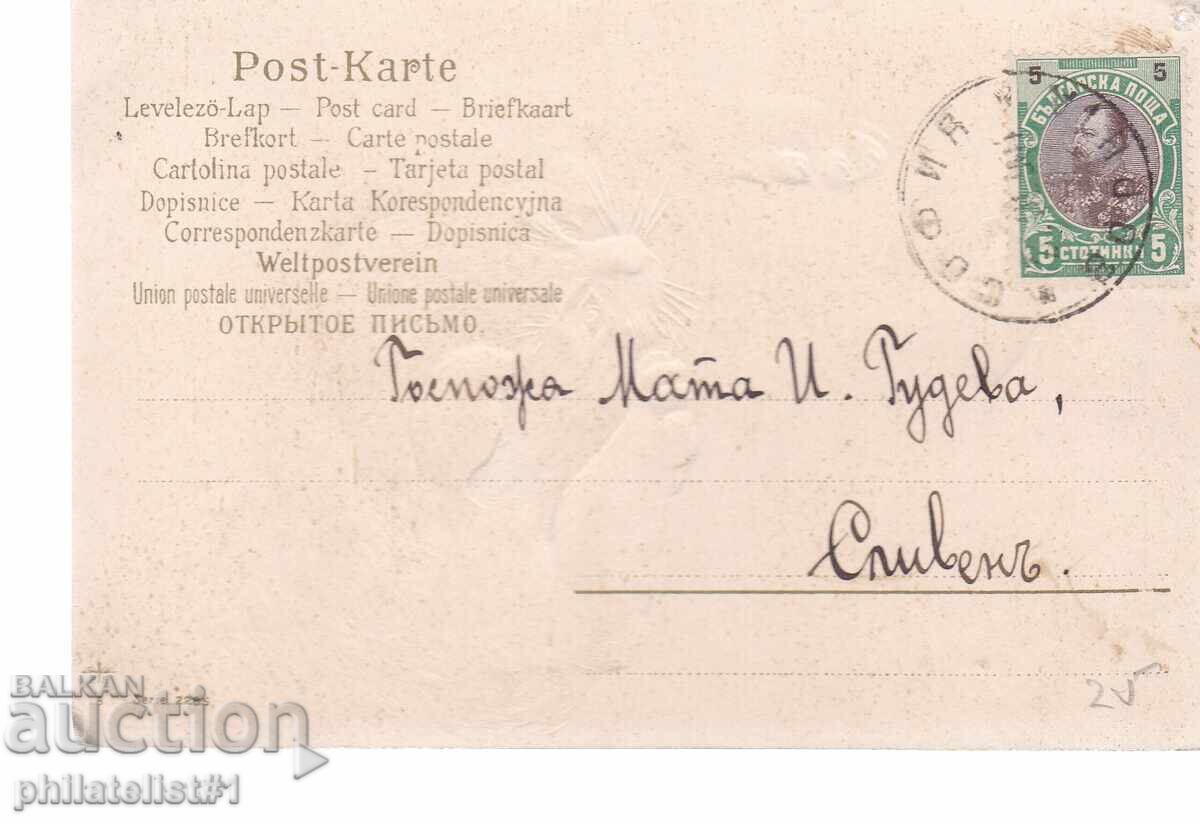 Post-Karte
Levelező-Lap — Post card — Briefkaart
Brefkort — Carte postale
Cartolina postale — Tarjeta postal
Dopisnice — Karta Korespondencyjna
Correspondenzkarte — Dopisnica
Weltpostverein
Union postale universelle — Unione postale universale
ОТКРЫТОЕ ПИСЬМО.
5 5
БЪЛГАРСКА ПОЩА
5 СТОТИНКИ 5
СОФИЯ
Госпожа Мата И. Гудева,
Сливенъ.
25
Serie 2285
BALKAN
auction
philatelist#1